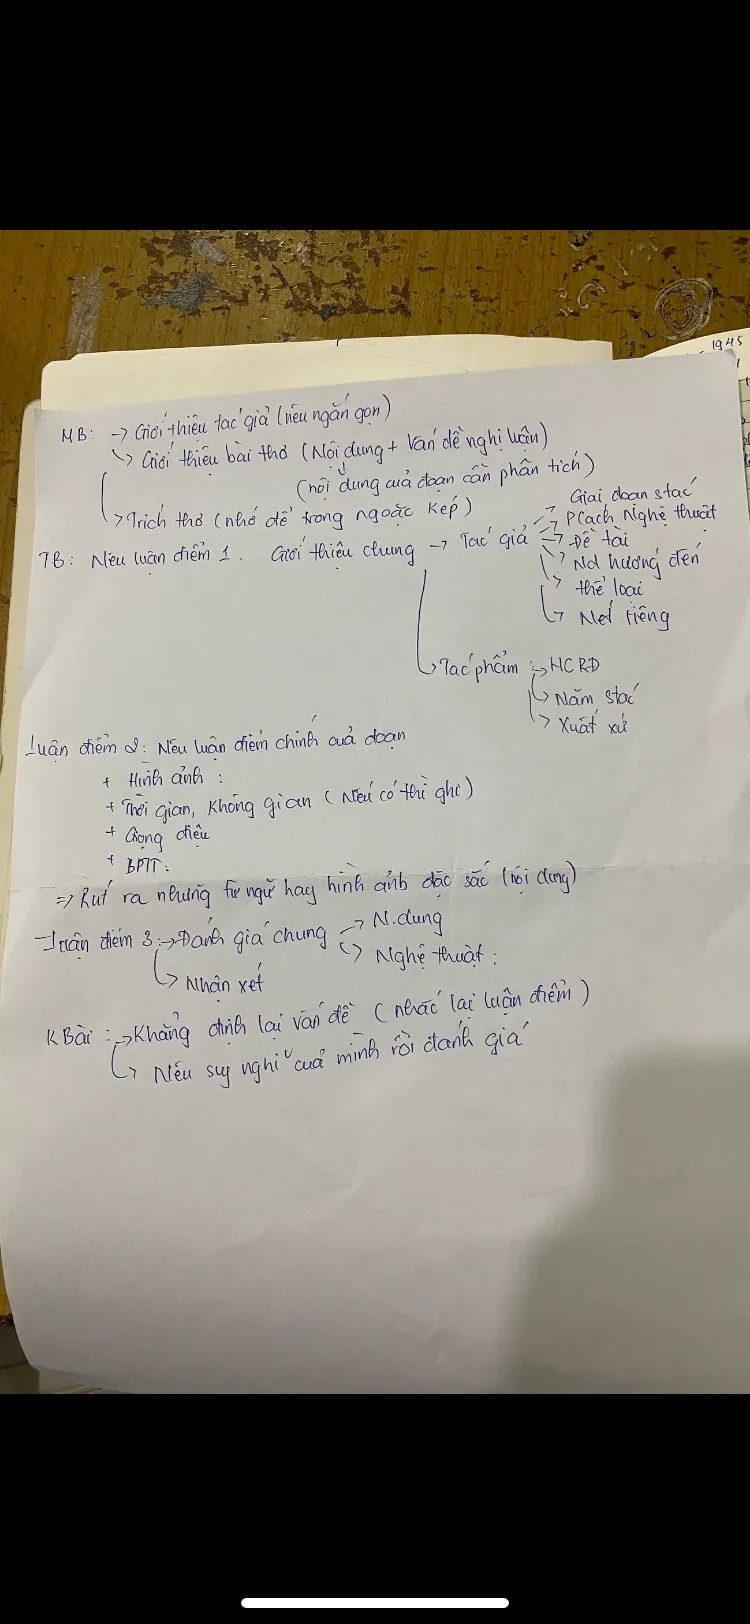 1945
MB: -> Giới thiệu tác giả (nêu ngắn gọn)
-> Giới thiệu bài thơ (Nội dung + Vấn đề nghị luận)
(nội dung của đoạn cần phân tích)
-> Trích thơ (nhớ để trong ngoặc kép)
TB: Nêu luận điểm 1. Giới thiệu chung -> Tác giả -> Giai đoạn stác
-> PCách Nghệ thuật
-> Đề tài
-> Nd hướng đến
-> thể loại
-> Nét riêng
-> Tác phẩm :-> HCRĐ
-> Năm stác
-> Xuất xứ
Luận điểm 2: Nêu luận điểm chính của đoạn
+ Hình ảnh :
+ Thời gian, không gian (Nếu có thì ghi)
+ Giọng điệu
+ BPTT:
=> Rút ra những từ ngữ hay hình ảnh đặc sắc (nội dung)
Luận điểm 3:-> Đánh giá chung -> N.dung
-> Nghệ thuật :
-> Nhận xét
K Bài :-> Khẳng định lại vấn đề (nhắc lại luận điểm)
-> Nêu suy nghĩ của mình rồi đánh giá